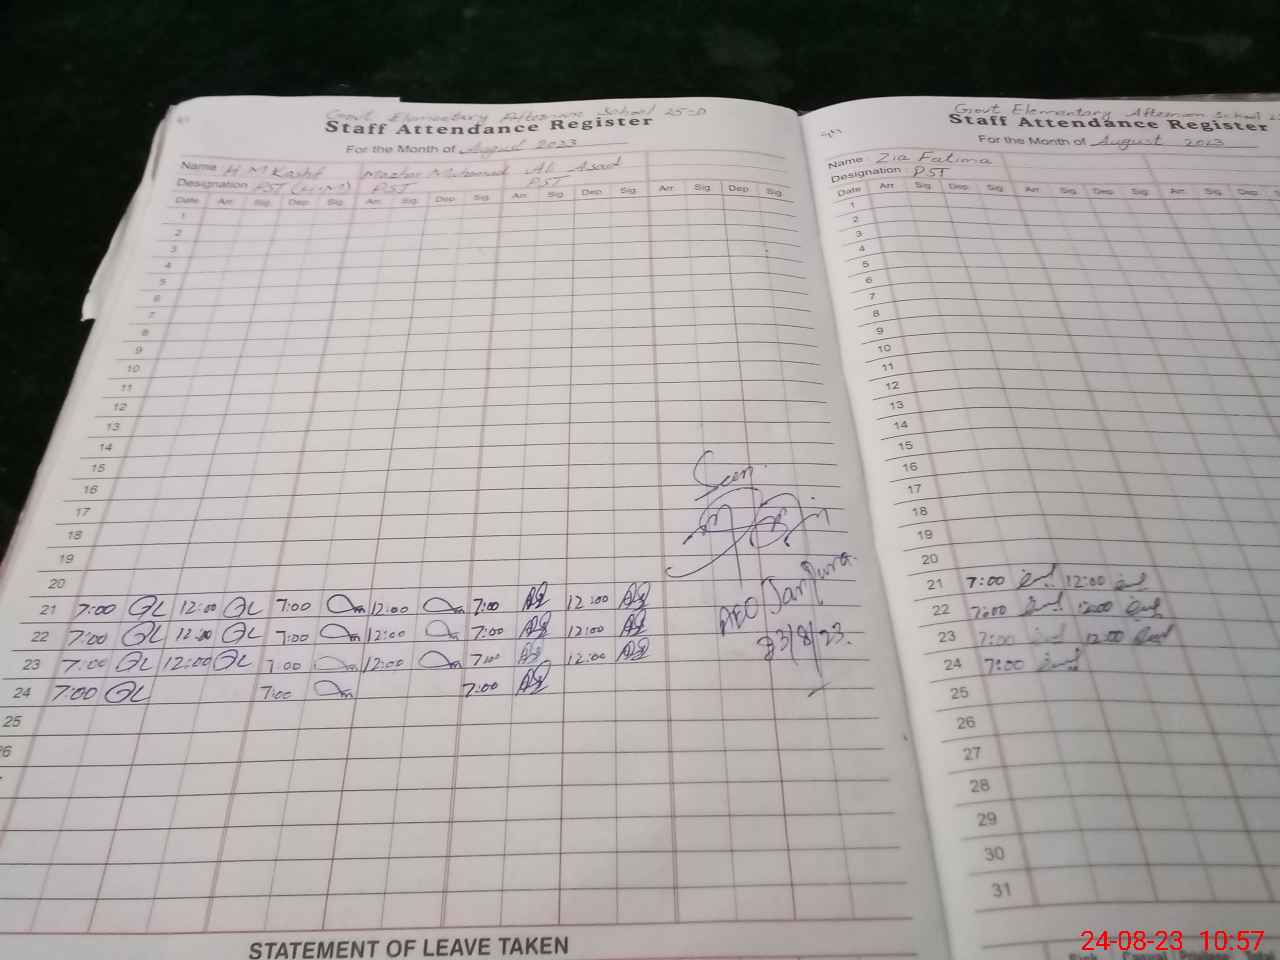 Govt Elementary Afternoon School 25-D
Staff Attendance Register
For the Month of August 2023
Name H M Kashif Mazhar Muhammad Ali Asad
Designation PST (H.M) PST PST
Date Arr. Sig. Dep. Sig. Arr. Sig. Dep. Sig. Arr. Sig. Dep. Sig. Arr. Sig. Dep. Sig.
1
2
3
4
5
6
7
8
9
10
11
12
13
14
15
16
17
18
19
20
21 7:00 12:00 7:00 12:00 7:00 12:00
22 7:00 12:00 7:00 12:00 7:00 12:00
23 7:00 12:00 7:00 12:00 7:00 12:00
24 7:00 7:00 7:00
25
Seen
AEO
23/8/23.
STATEMENT OF LEAVE TAKEN
Govt Elementary Afternoon School
Staff Attendance Register
For the Month of August 2023
Name : Zia Fatima
Designation : PST
Date Arr. Sig. Dep. Sig. Arr. Sig. Dep. Sig. Arr. Sig. Dep.
1
2
3
4
5
6
7
8
9
10
11
12
13
14
15
16
17
18
19
20
21 7:00 12:00
22 7:00 12:00
23 7:00 12:00
24 7:00
25
26
27
28
29
30
31
24-08-23 10:57